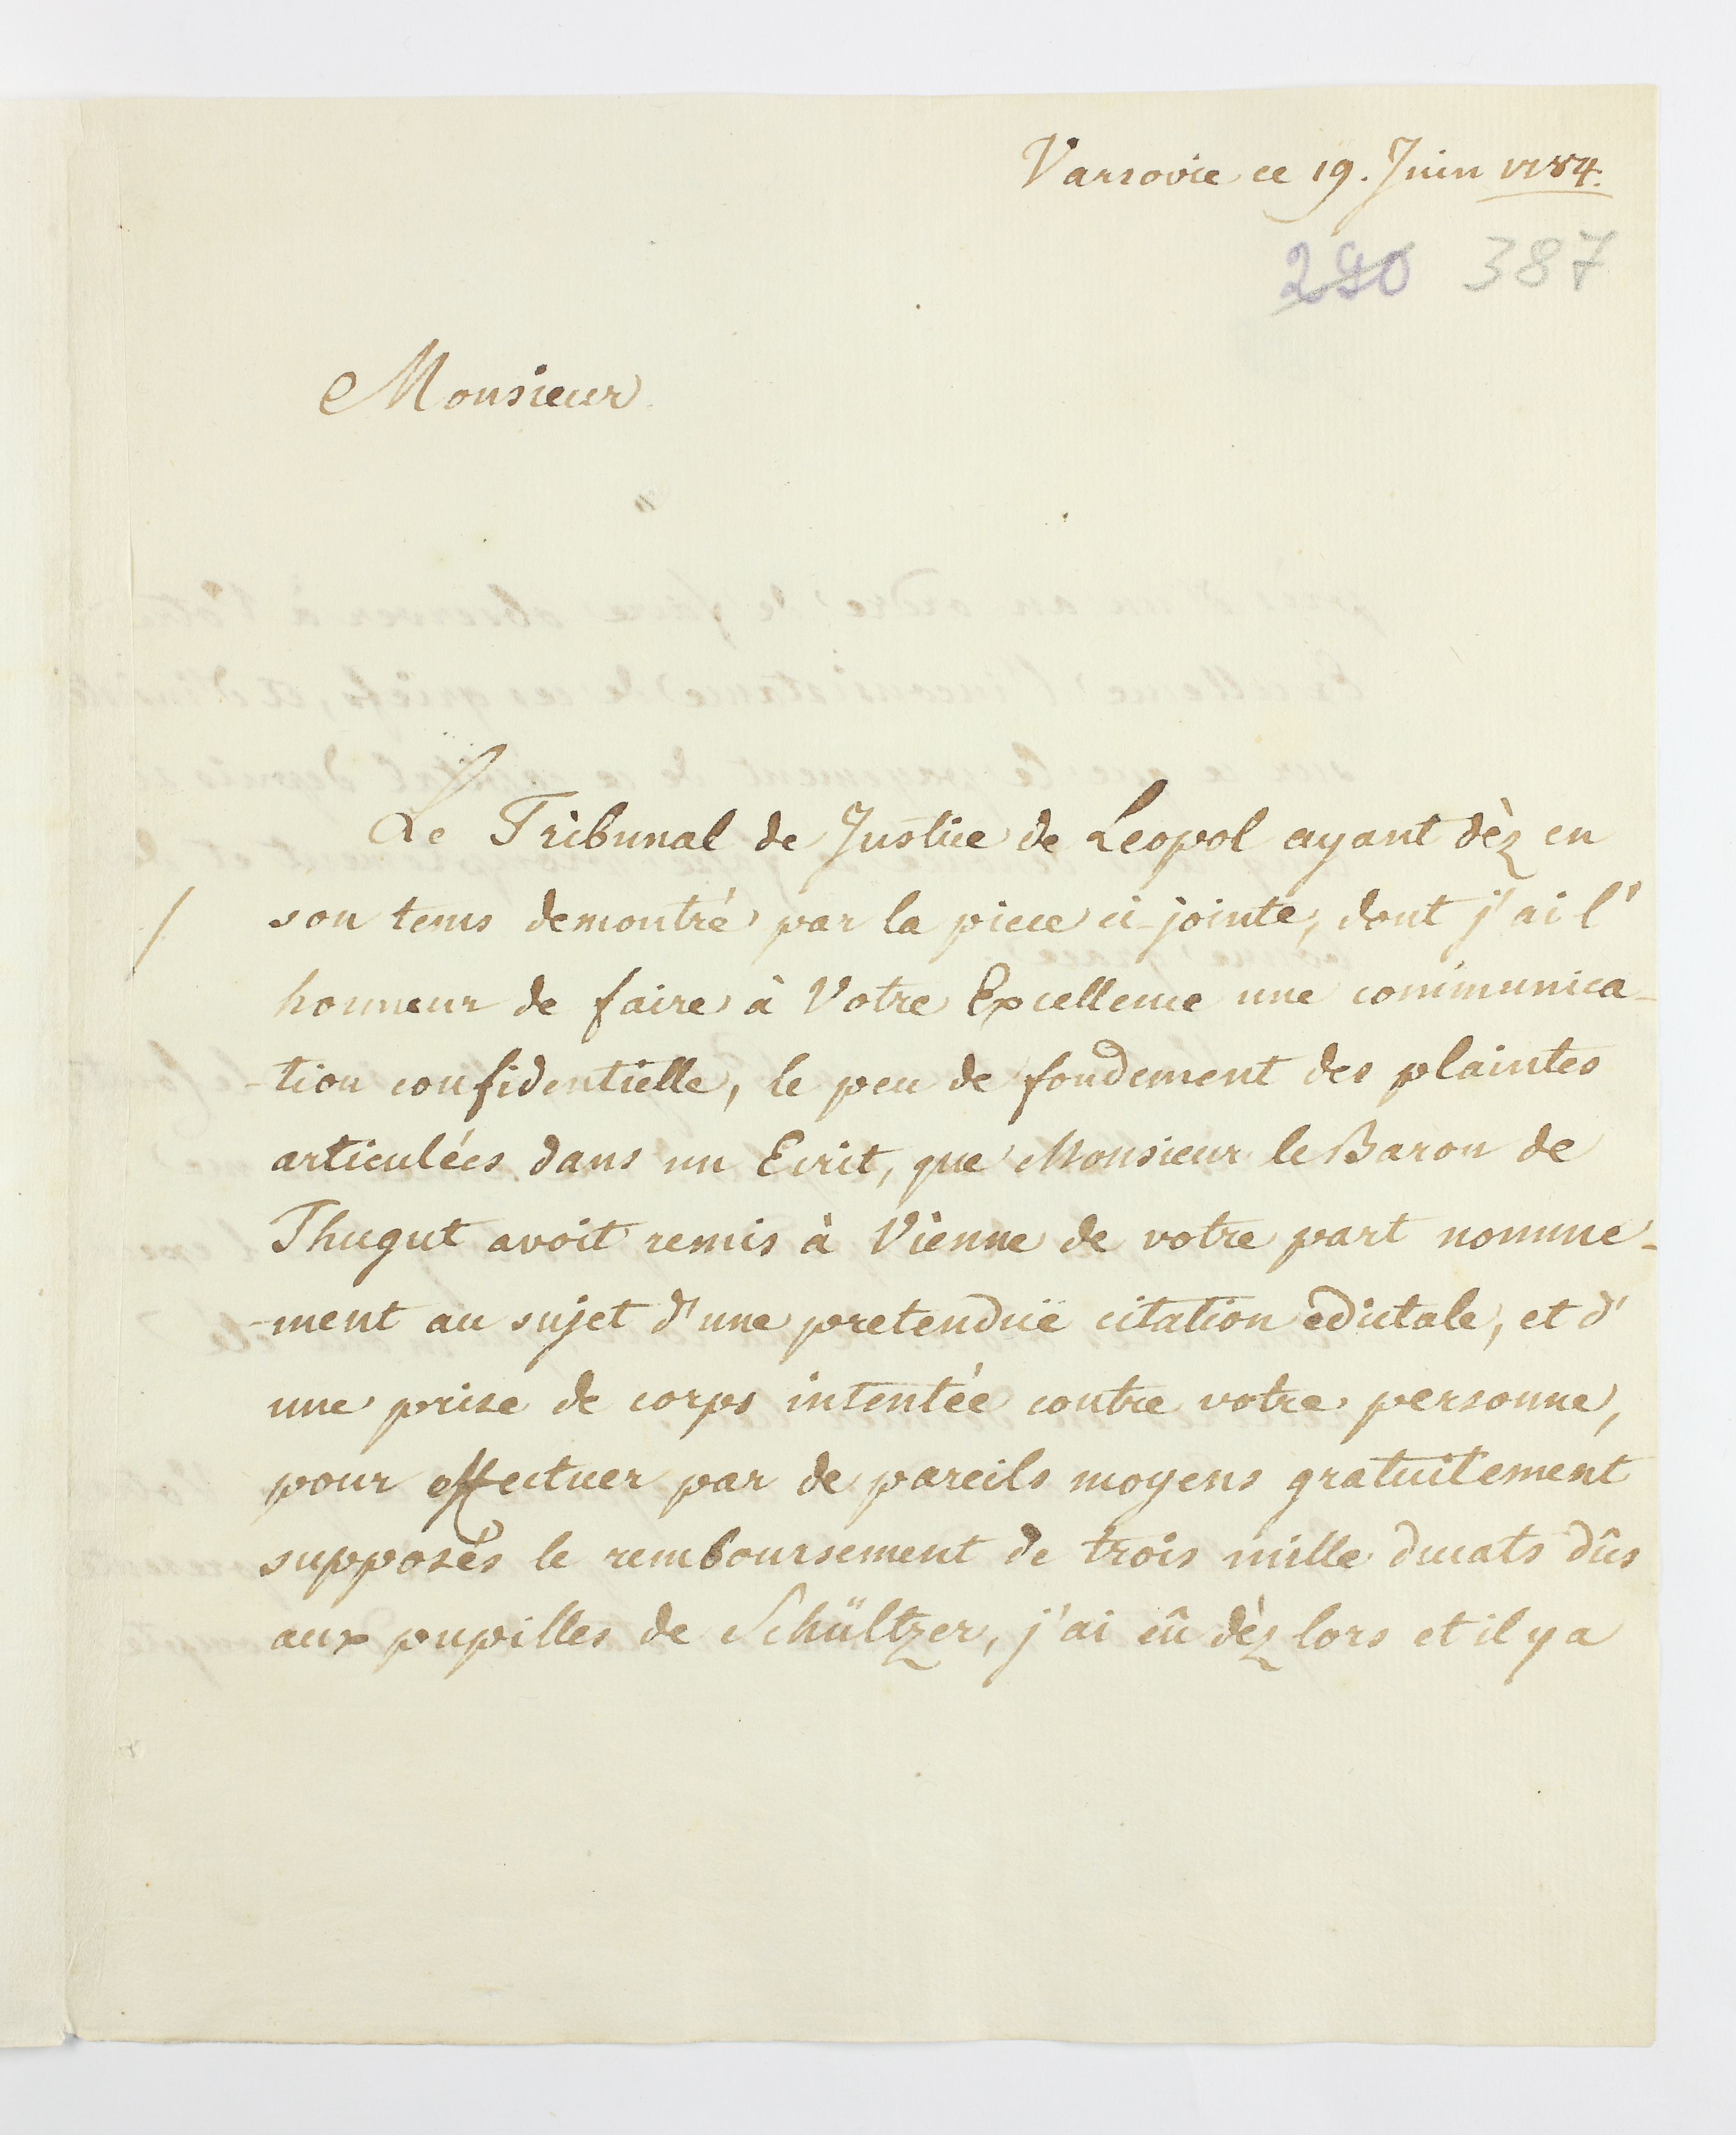 Varsovie ce 19. Juin 1784.
290 387
Monsieur
Le Tribunal de Justice de Leopol ayant dèz en
son tems demontré par la piece ci-jointe, dont j'ai l'
honneur de faire à Votre Excellence une communica-
-tion confidentielle, le peu de fondement des plaintes
articulées dans un Ecrit, que Monsieur le Baron de
Thugut avoit remis à Vienne de votre part nomme-
-ment au sujet d'une pretenduë citation edictale, et d'
une prise de corps intentée contre votre personne,
pour effectuer par de pareils moyens gratuitement
supposés le remboursement de trois mille ducats dûs
aux pupilles de Schültzer, j'ai eû dèz lors et il y a